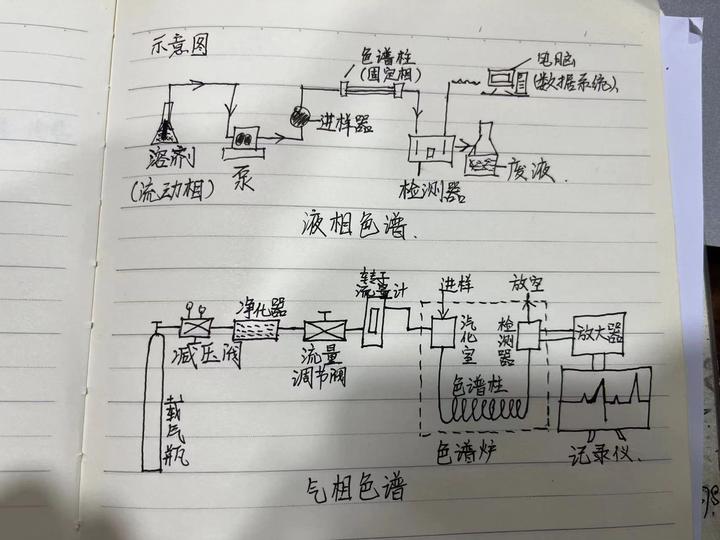 示意图
色谱柱
(固定相)
电脑
(数据系统)
进样器
溶剂
(流动相)
泵
检测器
废液.
液相色谱.
转子
流量计
进样
放空
净化器
减压阀
流量
调节阀
汽化室
检测器
放大器
色谱柱
载气瓶
色谱炉
记录仪.
气相色谱